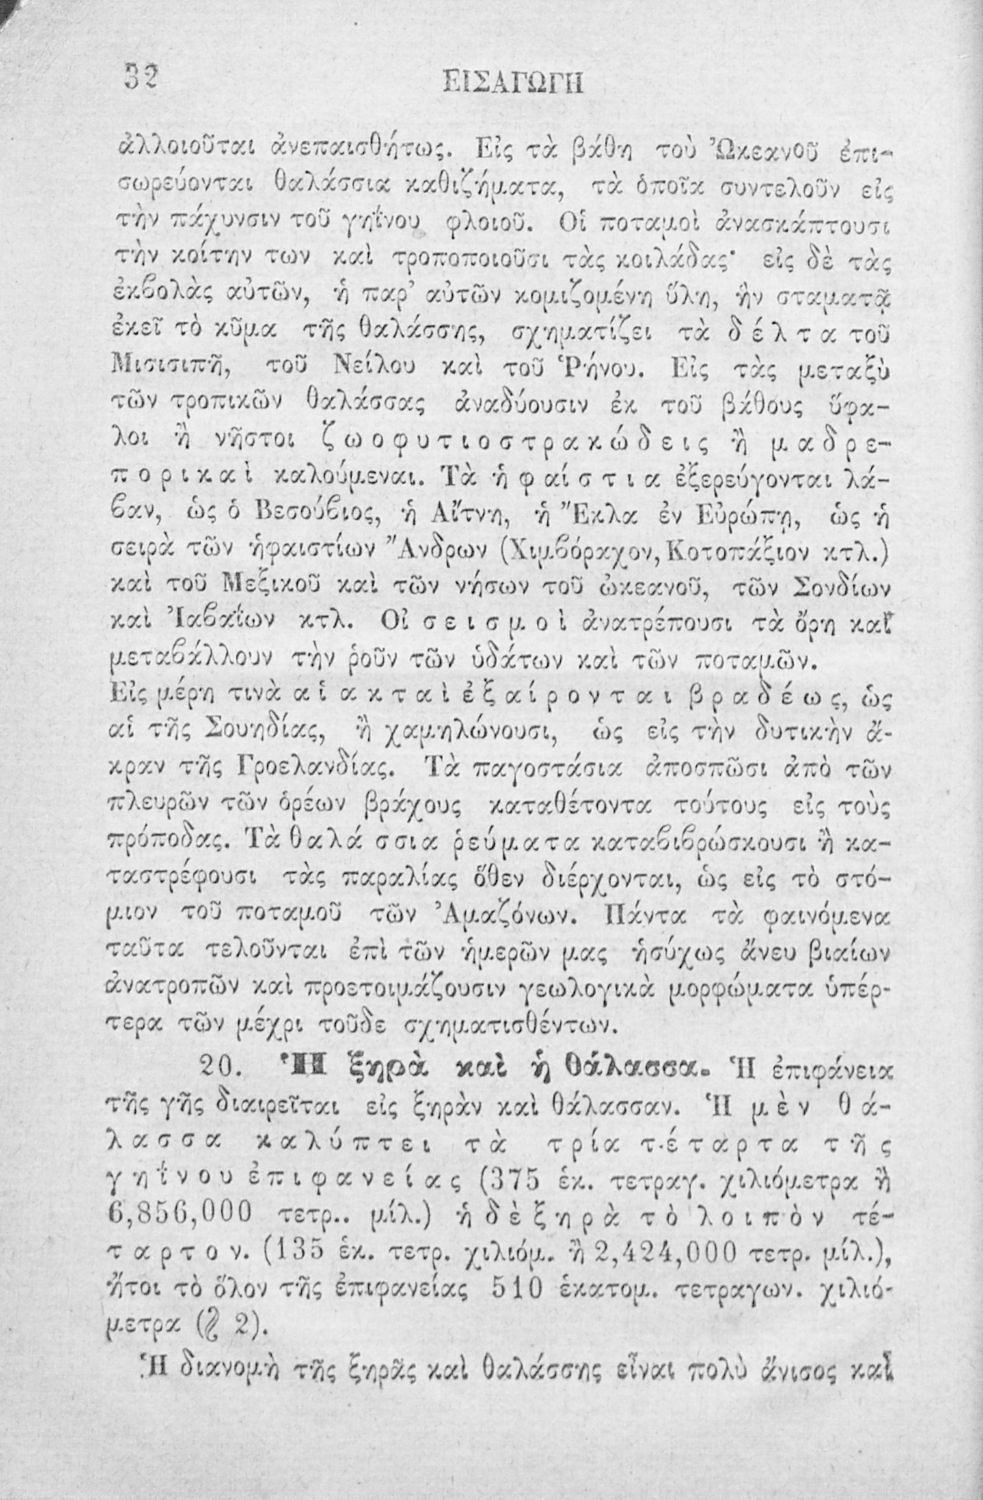 32 ΕΙΣΑΓΩΓΗ
ἀλλοιοῦται ἀνεπαισθήτως. Εἰς τὰ βάθη τοὺ Ὠκεανοῦ ἐπι-
σωρεύονται θαλάσσια καθιζήματα, τὰ ὁποῖα συντελοῦν εἰς
τὴν πάχυνσιν τοῦ γηΐνου φλοιοῦ. Οἱ ποταμοὶ ἀνασκάπτουσι
τὴν κοίτην των καὶ τροποποιοῦσι τὰς κοιλάδας· εἰς δὲ τὰς
ἐκβολὰς αὐτῶν, ἡ παρ' αὐτῶν κομιζομένη ὕλη, ἣν σταματᾷ
ἐκεῖ τὸ κῦμα τῆς θαλάσσης, σχηματίζει τὰ δέλτα τοῦ
Μισισιπῆ, τοῦ Νείλου καὶ τοῦ Ῥήνου. Εἰς τὰς μεταξὺ
τῶν τροπικῶν θαλάσσας ἀναδύουσιν ἐκ τοῦ βάθους ὕφα-
λοι ἢ νῆστοι ζωοφυτιοστρακώδεις ἢ μαδρε-
πορικαὶ καλούμεναι. Τὰ ἡφαίστια ἐξερεύγονται λά-
βαν, ὡς ὁ Βεσούβιος, ἡ Αἴτνη, ἡ Ἔκλα ἐν Εὐρώπῃ, ὡς ἡ
σειρὰ τῶν ἡφαιστίων Ἄνδρων (Χιμβόραχον, Κοτοπάξιον κτλ.)
καὶ τοῦ Μεξικοῦ καὶ τῶν νήσων τοῦ ὠκεανοῦ, τῶν Σονδίων
καὶ Ἰαβαΐων κτλ. Οἱ σεισμοὶ ἀνατρέπουσι τὰ ὄρη καὶ
μεταβάλλουν τὴν ῥοῦν τῶν ὑδάτων καὶ τῶν ποταμῶν.
Εἰς μέρη τινὰ αἱ ακταὶ ἐξαίρονται βραδέως, ὡς
αἱ τῆς Σουηδίας, ἢ χαμηλώνουσι, ὡς εἰς τὴν δυτικὴν ἄ-
κραν τῆς Γροελανδίας. Τὰ παγοστάσια ἀποσπῶσι ἀπὸ τῶν
πλευρῶν τῶν ὀρέων βράχους καταθέτοντα τούτους εἰς τοὺς
πρόποδας. Τὰ θαλάσσια ῥεύματα καταβιβρώσκουσι ἢ κα-
ταστρέφουσι τὰς παραλίας ὅθεν διέρχονται, ὡς εἰς τὸ στό-
μιον τοῦ ποταμοῦ τῶν Ἀμαζόνων. Πάντα τὰ φαινόμενα
ταῦτα τελοῦνται ἐπὶ τῶν ἡμερῶν μας ἡσύχως ἄνευ βιαίων
ἀνατροπῶν καὶ προετοιμάζουσιν γεωλογικὰ μορφώματα ὑπέρ-
τερα τῶν μέχρι τοῦδε σχηματισθέντων.
20. Ἡ ξηρὰ καὶ ἡ θάλασσα. Ἡ ἐπιφάνεια
τῆς γῆς διαιρεῖται εἰς ξηρὰν καὶ θάλασσαν. Ἡ μὲν θά-
λασσα καλύπτει τὰ τρία τέταρτα τῆς
γηΐνου ἐπιφανείας (375 ἑκ. τετραγ. χιλιόμετρα ἢ
6,856,000 τετρ.. μίλ.) ἡ δὲ ξηρὰ τὸ λοιπὸν τέ-
ταρτον. (135 ἑκ. τετρ. χιλιόμ. ἢ 2,424,000 τετρ. μίλ.),
ἤτοι τὸ ὅλον τῆς ἐπιφανείας 510 ἑκατομ. τετραγων. χιλιό-
μετρα (§ 2).
Ἡ διανομὴ τῆς ξηρᾶς καὶ θαλάσσης εἶναι πολὺ ἄνισος καὶ